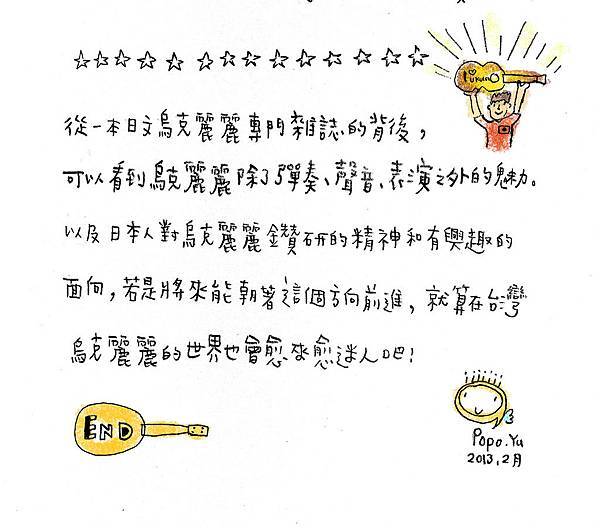 ☆☆☆☆☆ ☆☆☆☆☆☆☆☆☆
從一本日文烏克麗麗專門雜誌的背後,
可以看到烏克麗麗除了彈奏、聲音、表演之外的魅力。
以及日本人對烏克麗麗鑽研的精神和有興趣的
面向,若是將來能朝著這個方向前進,就算在台灣
烏克麗麗的世界也會愈來愈迷人吧!
END
Popo.Yu
2013.2月